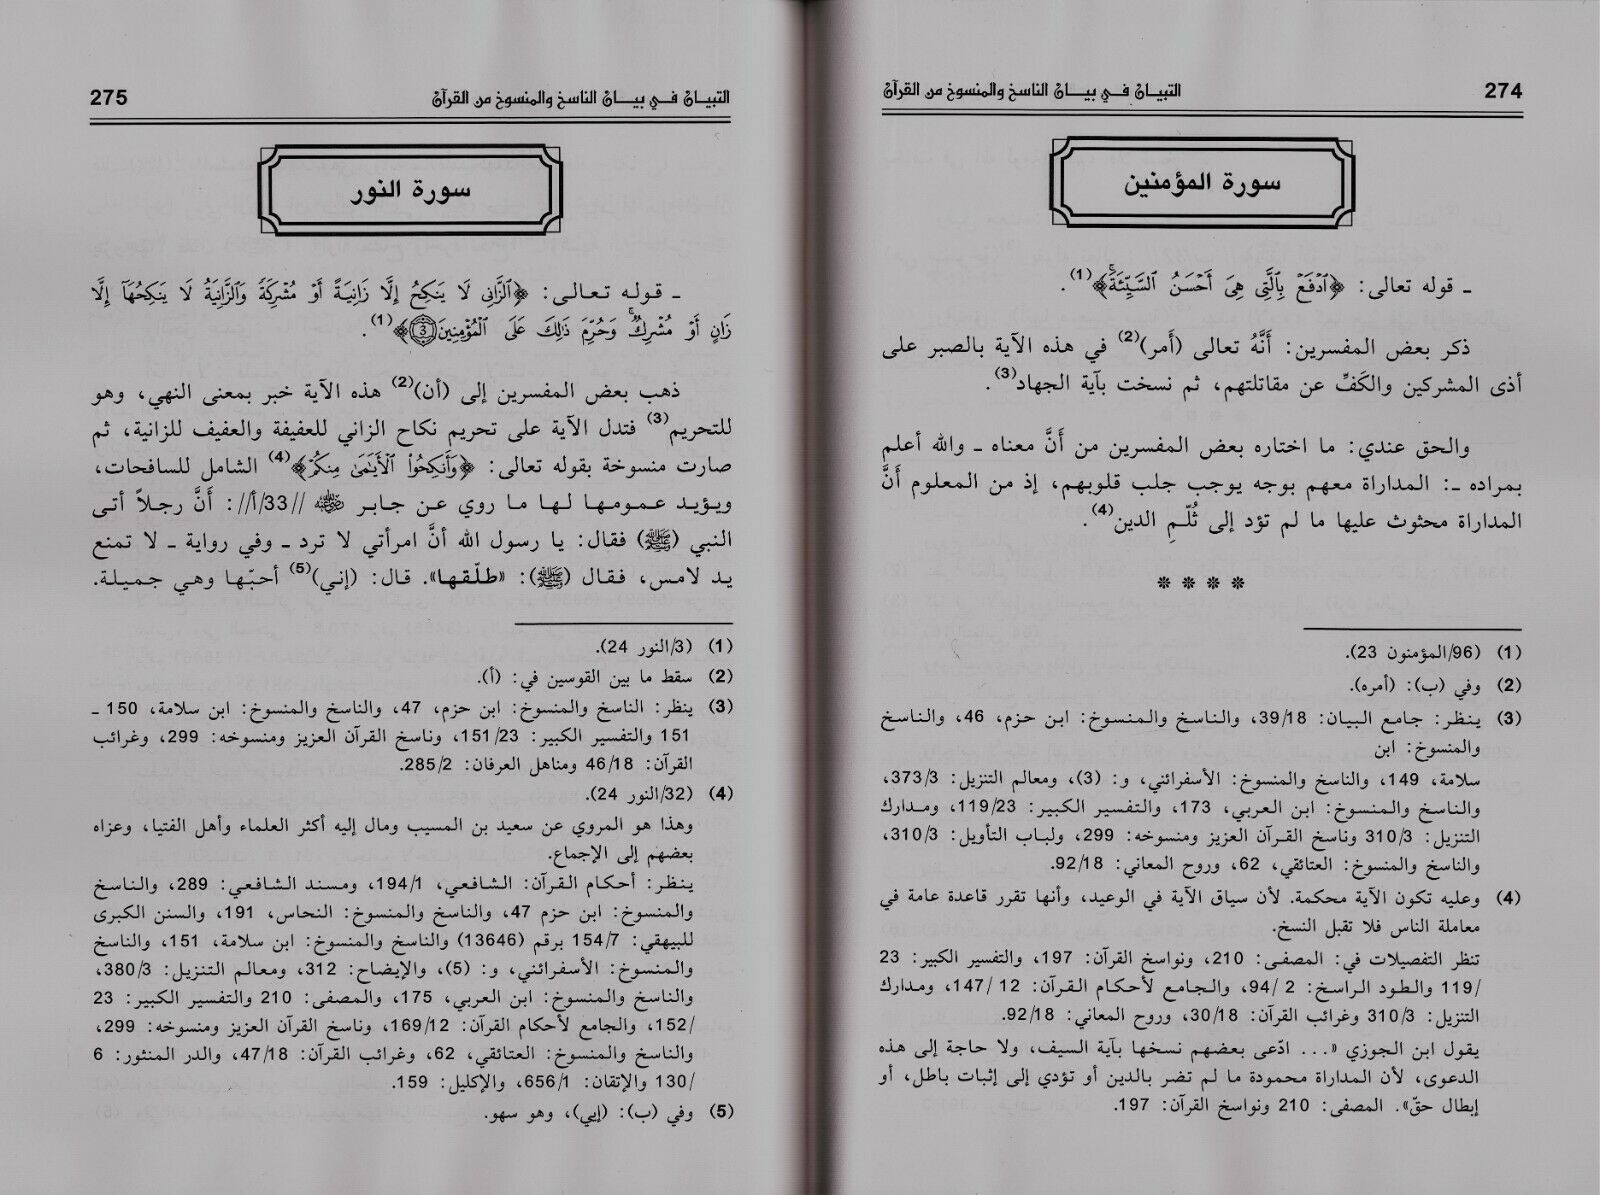 274
التبيان في بيان الناسخ والمنسوخ من القرآن
سورة المؤمنين
ـ قوله تعالى: ﴿ٱدْفَعْ بِٱلَّتِى هِىَ أَحْسَنُ ٱلسَّيِّئَةَ﴾(1).
ذكر بعض المفسرين: أَنَّهُ تعالى (أمر)(2) في هذه الآية بالصبر على
أذى المشركين والكَفِّ عن مقاتلتهم، ثم نسخت بآية الجهاد(3).
والحق عندي: ما اختاره بعض المفسرين من أَنَّ معناه ـ والله أعلم
بمراده ـ: المداراة معهم بوجه يوجب جلب قلوبهم، إذ من المعلوم أَنَّ
المداراة محثوث عليها ما لم تؤد إلى ثُلّمِ الدين(4).
* * * *
(1) (96/المؤمنون 23).
(2) وفي (ب): (أمره).
(3) ينظر: جامع البيان: 39/18، والناسخ والمنسوخ: ابن حزم، 46، والناسخ
والمنسوخ: ابن
سلامة، 149، والناسخ والمنسوخ: الأسفرائني، و: (3)، ومعالم التنزيل: 373/3،
والناسخ والمنسوخ: ابن العربي، 173، والتفسير الكبير: 119/23، ومدارك
التنزيل: 310/3 وناسخ القرآن العزيز ومنسوخه: 299، ولباب التأويل: 310/3،
والناسخ والمنسوخ: العتائقي، 62، وروح المعاني: 92/18.
(4) وعليه تكون الآية محكمة. لأن سياق الآية في الوعيد، وأنها تقرر قاعدة عامة في
معاملة الناس فلا تقبل النسخ.
تنظر التفصيلات في: المصفى: 210، ونواسخ القرآن: 197، والتفسير الكبير: 23
/119 والطود الراسخ: 2 /94، والجامع لأحكام القرآن: 12 /147، ومدارك
التنزيل: 310/3 وغرائب القرآن: 30/18، وروح المعاني: 92/18.
يقول ابن الجوزي «... ادّعى بعضهم نسخها بآية السيف، ولا حاجة إلى هذه
الدعوى، لأن المداراة محمودة ما لم تضر بالدين أو تؤدي إلى إثبات باطل، أو
إبطال حقّ». المصفى: 210 ونواسخ القرآن: 197.
التبيان في بيان الناسخ والمنسوخ من القرآن
275
سورة النور
ـ قوله تعالى: ﴿ٱلزَّانِى لَا يَنكِحُ إِلَّا زَانِيَةً أَوْ مُشْرِكَةً وَٱلزَّانِيَةُ لَا يَنكِحُهَآ إِلَّا
زَانٍ أَوْ مُشْرِكٌ وَحُرِّمَ ذَٰلِكَ عَلَى ٱلْمُؤْمِنِينَ 3﴾(1).
ذهب بعض المفسرين إلى (أن)(2) هذه الآية خبر بمعنى النهي، وهو
للتحريم(3) فتدل الآية على تحريم نكاح الزاني للعفيفة والعفيف للزانية، ثم
صارت منسوخة بقوله تعالى: ﴿وَأَنكِحُوا۟ ٱلْأَيَٰمَىٰ مِنكُمْ﴾(4) الشامل للسافحات،
ويؤيد عمومها لها ما روي عن جابر رضي الله عنه //33/أ//: أَنَّ رجلاً أتى
النبي (ﷺ) فقال: يا رسول الله أنَّ امرأتي لا ترد ـ وفي رواية ـ لا تمنع
يد لامس، فقال (ﷺ): «طلّقها». قال: (إني)(5) أحبّها وهي جميلة.
(1) (3/النور 24).
(2) سقط ما بين القوسين في: (أ).
(3) ينظر: الناسخ والمنسوخ: ابن حزم، 47، والناسخ والمنسوخ: ابن سلامة، 150 ـ
151 والتفسير الكبير: 151/23، وناسخ القرآن العزيز ومنسوخه: 299، وغرائب
القرآن: 46/18 ومناهل العرفان: 285/2.
(4) (32/النور 24).
وهذا هو المروي عن سعيد بن المسيب ومال إليه أكثر العلماء وأهل الفتيا، وعزاه
بعضهم إلى الإجماع.
ينظر: أحكام القرآن: الشافعي، 194/1، ومسند الشافعي: 289، والناسخ
والمنسوخ: ابن حزم 47، والناسخ والمنسوخ: النحاس، 191، والسنن الكبرى
للبيهقي: 154/7 برقم (13646) والناسخ والمنسوخ: ابن سلامة، 151، والناسخ
والمنسوخ: الأسفرائني، و: (5)، والإيضاح: 312، ومعالم التنزيل: 380/3،
والناسخ والمنسوخ: ابن العربي، 175، والمصفى: 210 والتفسير الكبير: 23
/152، والجامع لأحكام القرآن: 169/12، وناسخ القرآن العزيز ومنسوخه: 299،
والناسخ والمنسوخ: العتائقي، 62، وغرائب القرآن: 47/18، والدر المنثور: 6
/130 والإتقان: 656/1، والإكليل: 159.
(5) وفي (ب): (إيي)، وهو سهو.